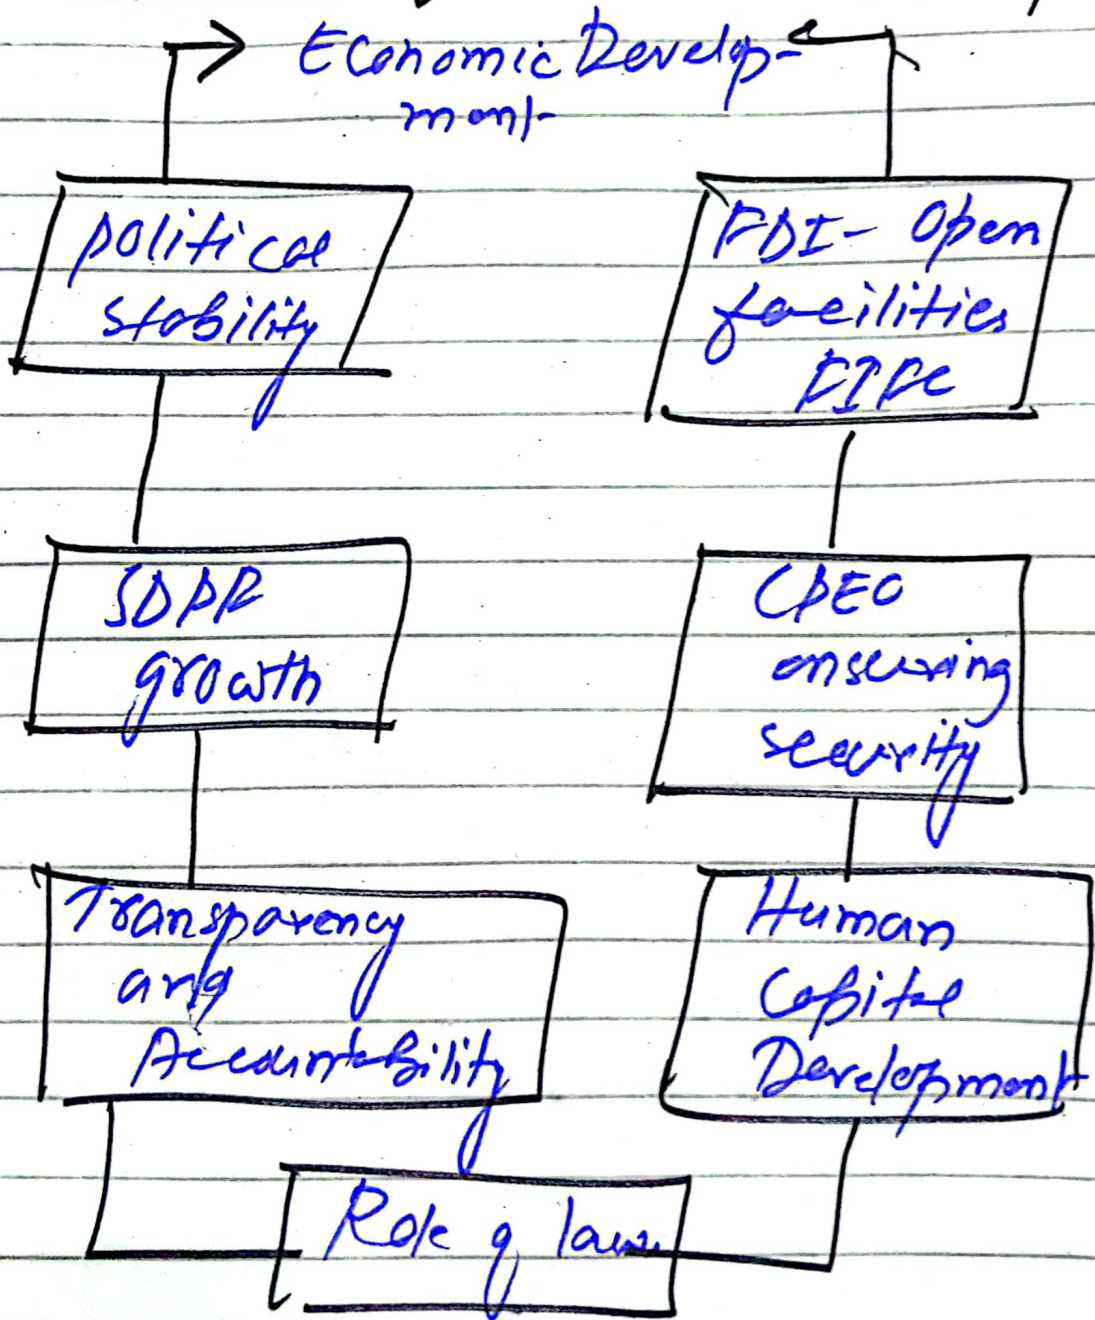 Economic Develop-
ment
political
stability
FDI - Open
facilities
growth
CPEC
ensuring
security
Transparency
and
Accountability
Human
Capital
Development
Role of law